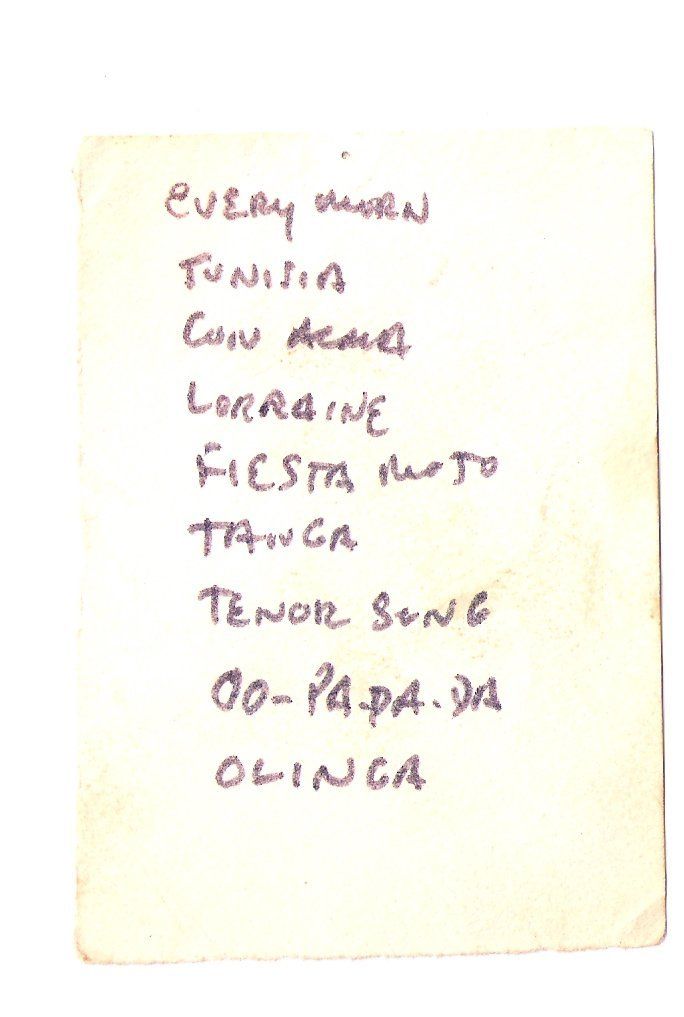 EVERY MORN
TUNISIA
CON ALMA
LORRAINE
FIESTA MOJO
TANGA
TENOR SONG
OO-PA.PA.DA
OLINGA